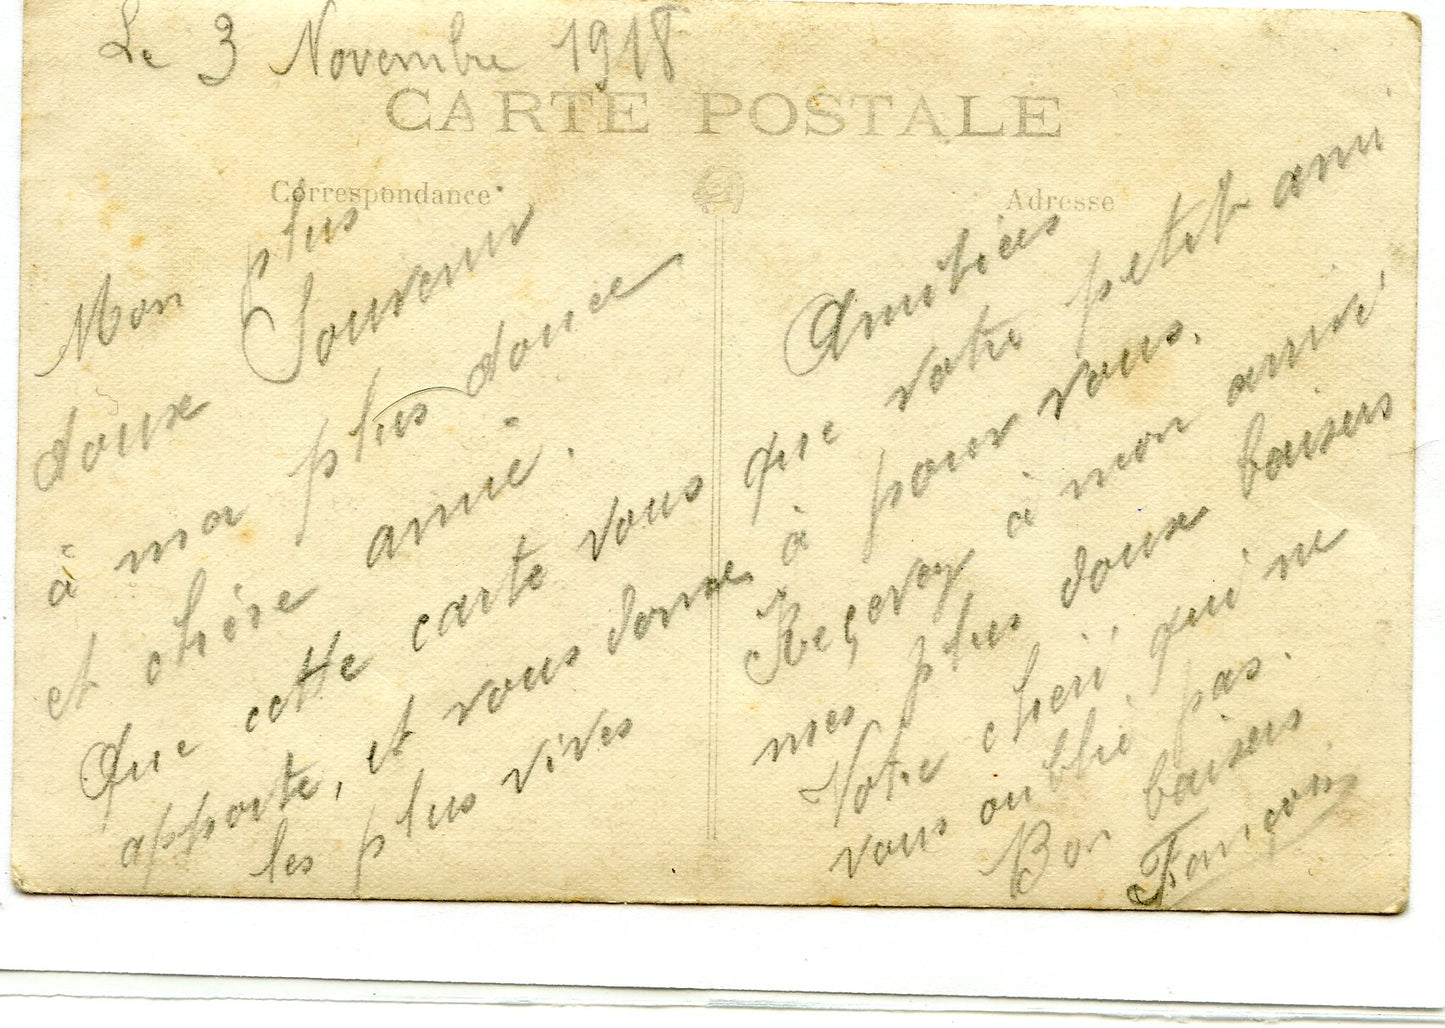 Le 3 Novembre 1918
CARTE POSTALE
Correspondance
Adresse
Mon plus
doux Souvenir
à ma plus douce
et chère amié.
Que cette carte vous
apporte, et vous donne
les plus vives
Amitiées
que votre petit ami
à pour vous.
Reçevey à mon amié
mes plus doux baisers
Votre cheri qui ne
vous oublié pas.
Bon baisers
François